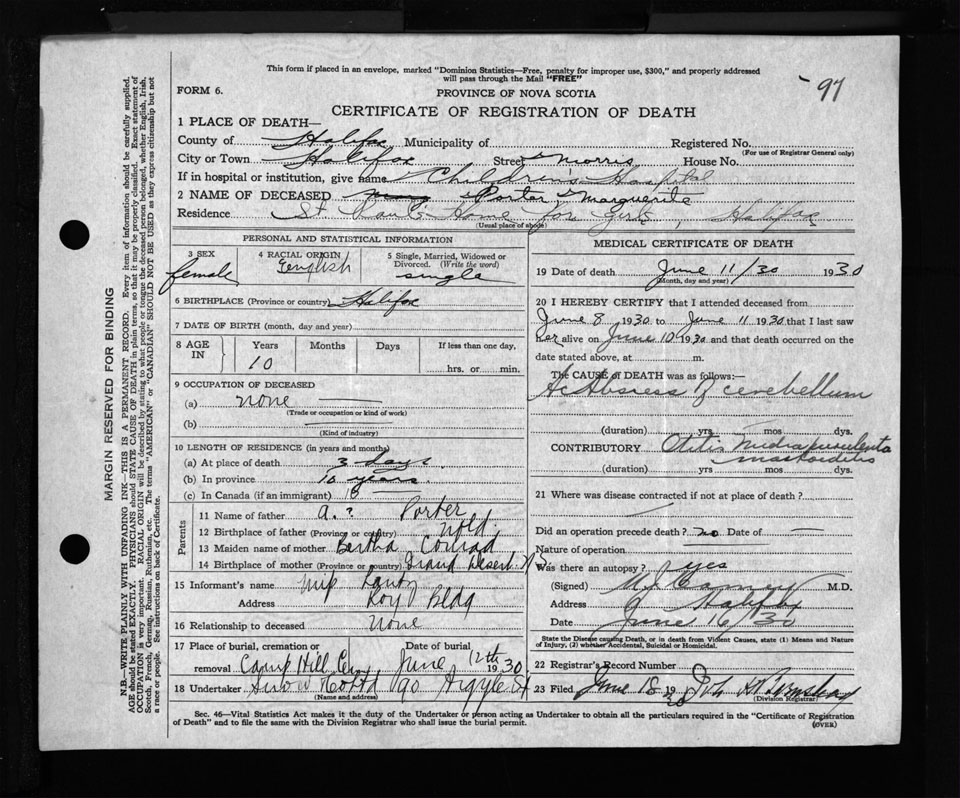 97
This form if placed in an envelope, marked "Dominion Statistics—Free, penalty for improper use, $300," and properly addressed
will pass through the Mail "FREE"
FORM 6.
PROVINCE OF NOVA SCOTIA
CERTIFICATE OF REGISTRATION OF DEATH
1 PLACE OF DEATH—
County of Halifax Municipality of Registered No.
(For use of Registrar General only)
City or Town Halifax Street Morris House No.
If in hospital or institution, give name Children's Hospital
2 NAME OF DECEASED Porter, Marguerite
Residence St Paul's Home for Girls, Halifax
(Usual place of abode)
PERSONAL AND STATISTICAL INFORMATION
3 SEX
female
4 RACIAL ORIGIN
English
5 Single, Married, Widowed or
Divorced. (Write the word)
single
6 BIRTHPLACE (Province or country) Halifax
7 DATE OF BIRTH (month, day and year)
8 AGE IN
Years Months Days If less than one day,
10
hrs. or min.
9 OCCUPATION OF DECEASED
(a) none
(Trade or occupation or kind of work)
(b)
(Kind of industry)
10 LENGTH OF RESIDENCE (in years and months)
(a) At place of death 3 days.
(b) In province 10 years.
(c) In Canada (if an immigrant) 10
Parents
11 Name of father A. ? Porter
12 Birthplace of father (Province or country) Nfld.
13 Maiden name of mother Bertha Conrad
14 Birthplace of mother (Province or country) Grand Desert. N S
15 Informant's name
Address Roy Bldg
16 Relationship to deceased None
17 Place of burial, cremation or
removal Camp Hill Cem
Date of burial
June 12th 1930
18 Undertaker 90 Argyle St
(Name and address)
MEDICAL CERTIFICATE OF DEATH
19 Date of death June 11/30 1930
(Month, day and year)
20 I HEREBY CERTIFY that I attended deceased from
June 8 1930 to June 11 1930 that I last saw
her alive on June 10 1930 and that death occurred on the
date stated above, at m.
The CAUSE of DEATH was as follows:—
Ac Absress of cerebellum
(duration) yrs mos dys.
CONTRIBUTORY Otitis Media purulenta
mastoiditis
(duration) yrs. mos dys.
21 Where was disease contracted if not at place of death?
Did an operation precede death? no Date of
Nature of operation
Was there an autopsy? yes
(Signed) M.D.
Address Halifax
Date June 16/30
State the Disease causing Death, or in death from Violent Causes, state (1) Means and Nature
of Injury, (2) whether Accidental, Suicidal or Homicidal.
22 Registrar's Record Number
23 Filed June 18 1930
(Division Registrar)
Sec. 46—Vital Statistics Act makes it the duty of the Undertaker or person acting as Undertaker to obtain all the particulars required in the "Certificate of Registration
of Death" and to file the same with the Division Registrar who shall issue the burial permit.
(OVER)
MARGIN RESERVED FOR BINDING
N.B.—WRITE PLAINLY WITH UNFADING INK—THIS IS A PERMANENT RECORD. Every item of information should be carefully supplied.
AGE should be stated EXACTLY. PHYSICIANS should STATE CAUSE OF DEATH in plain terms, so that it may be properly classified. Exact statement of
OCCUPATION is very important. RACIAL ORIGIN will be described by stating to what people or tongue the deceased person belonged, whether English, Irish,
Scotch, French, German, Russian, Ruthenian, etc. The terms "AMERICAN" or "CANADIAN" SHOULD NOT BE USED as they express citizenship but not
a race or people. See instructions on back of Certificate.